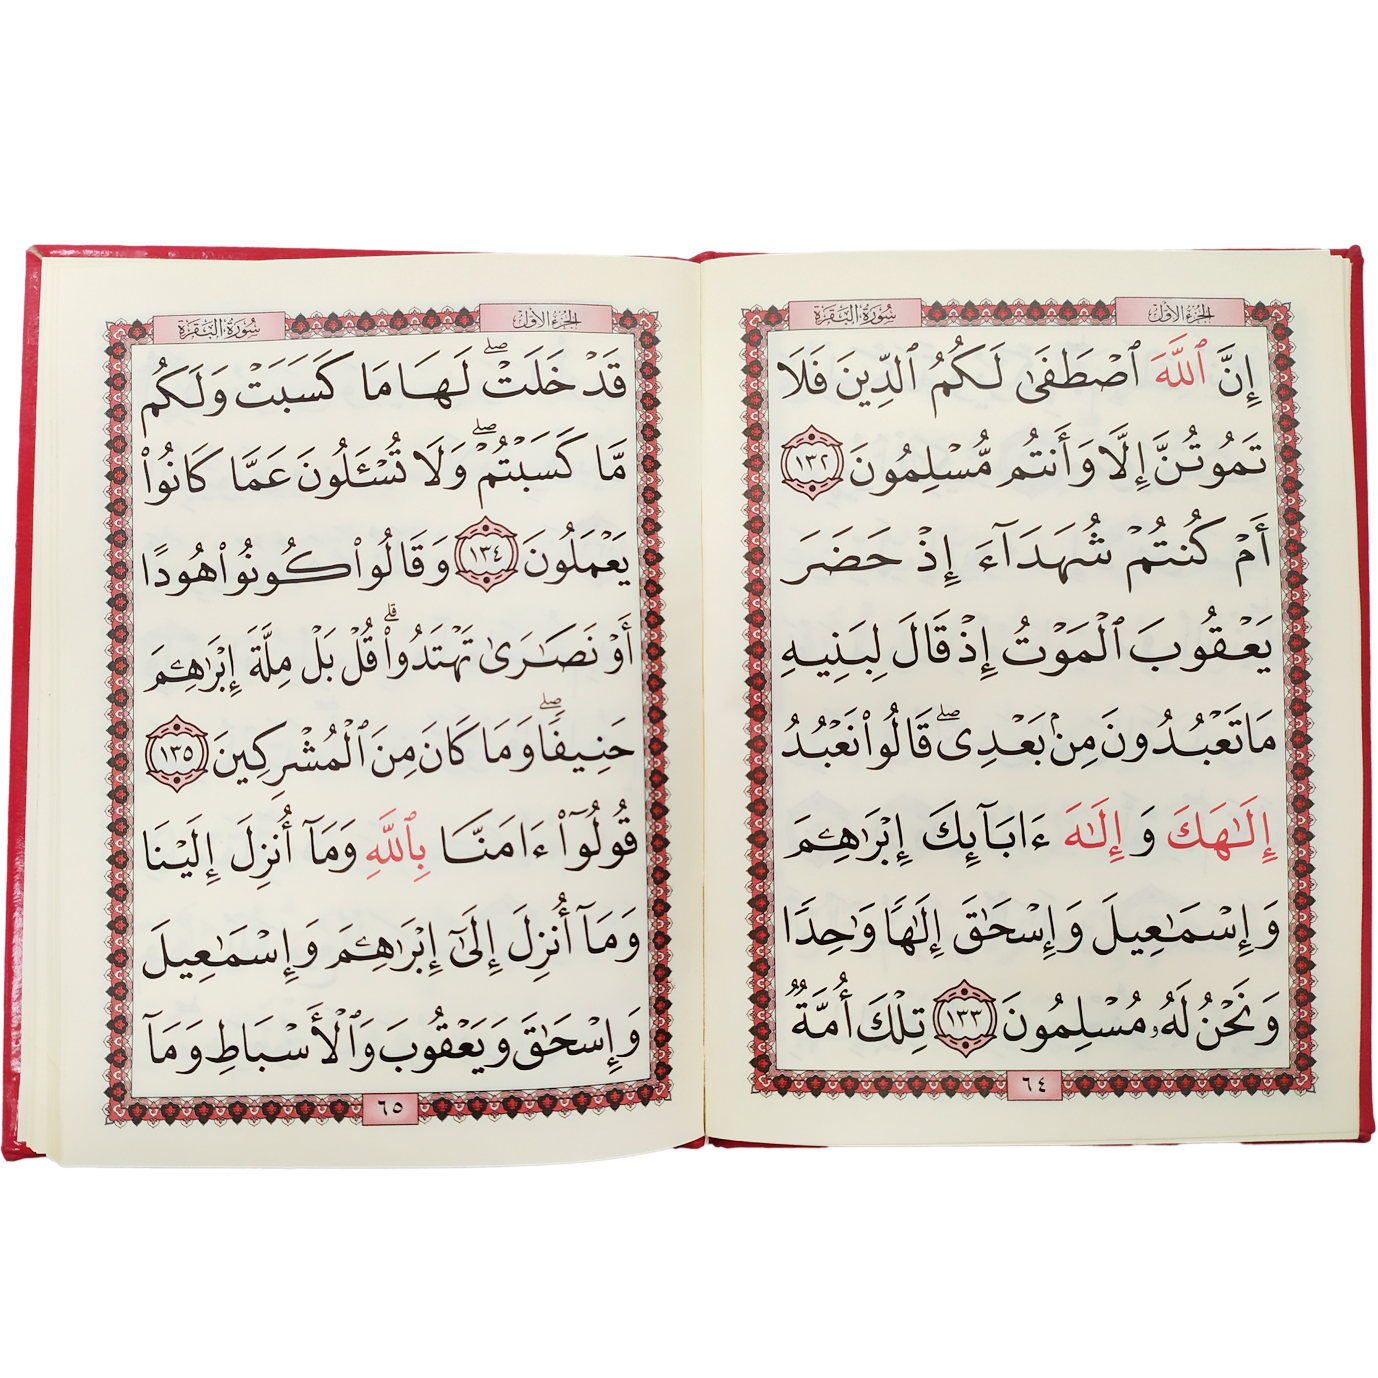 الجزء الأول
سورة البقرة
إِنَّ ٱللَّهَ ٱصْطَفَىٰ لَكُمُ ٱلدِّينَ فَلَا
تَمُوتُنَّ إِلَّا وَأَنتُم مُّسْلِمُونَ ١٣٢
أَمْ كُنتُمْ شُهَدَآءَ إِذْ حَضَرَ
يَعْقُوبَ ٱلْمَوْتُ إِذْ قَالَ لِبَنِيهِ
مَا تَعْبُدُونَ مِنۢ بَعْدِى ۖ قَالُوا۟ نَعْبُدُ
إِلَـٰهَكَ وَإِلَـٰهَ ءَابَآئِكَ إِبْرَٰهِـۧمَ
وَإِسْمَـٰعِيلَ وَإِسْحَـٰقَ إِلَـٰهًا وَٰحِدًا
وَنَحْنُ لَهُۥ مُسْلِمُونَ ١٣٣ تِلْكَ أُمَّةٌ
٦٤
الجزء الأول
سورة البقرة
قَدْ خَلَتْ ۖ لَهَا مَا كَسَبَتْ وَلَكُم
مَّا كَسَبْتُمْ ۖ وَلَا تُسْـَٔلُونَ عَمَّا كَانُوا۟
يَعْمَلُونَ ١٣٤ وَقَالُوا۟ كُونُوا۟ هُودًا
أَوْ نَصَـٰرَىٰ تَهْتَدُوا۟ ۗ قُلْ بَلْ مِلَّةَ إِبْرَٰهِـۧمَ
حَنِيفًا ۖ وَمَا كَانَ مِنَ ٱلْمُشْرِكِينَ ١٣٥
قُولُوٓا۟ ءَامَنَّا بِٱللَّهِ وَمَآ أُنزِلَ إِلَيْنَا
وَمَآ أُنزِلَ إِلَىٰٓ إِبْرَٰهِـۧمَ وَإِسْمَـٰعِيلَ
وَإِسْحَـٰقَ وَيَعْقُوبَ وَٱلْأَسْبَاطِ وَمَآ
٦٥